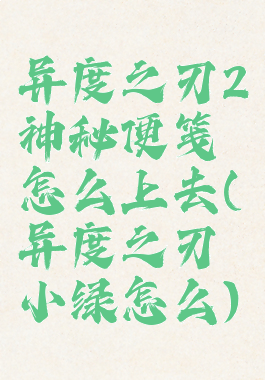 异度之刃2
神秘便笺
怎么上去(
异度之刃
小绿怎么)